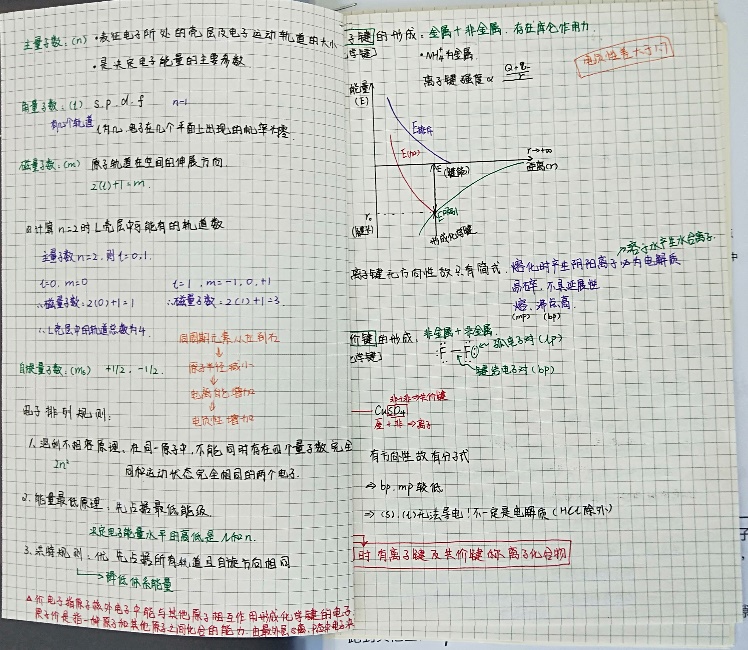 主量子数:(n) •表征电子所处的壳层及电子运动轨道的大小
•是决定电子能量的主要参数
角量子数:(l) s.p.d.f n-1
有几个轨道
磁量子数:(m) 原子轨道在空间的伸展方向.
2(l)+1=m.
计算n=2时L壳层中可能有的轨道数
主量子数n=2,则l=0,1.
l=0, m=0 l=1, m=-1, 0, +1
∴磁量子数=2(0)+1=1 ∴磁量子数=2(1)+1=3.
∴L壳层中的轨道总数为4.
同周期元素从左到右
↓
原子半径减小
↓
电离能增加
↓
电负性增加
自旋量子数:(ms) +1/2, -1/2.
电子排列规则:
1.泡利不相容原理,在同一原子中,不能同时有在四个量子数完全
2n²
运动状态完全相同的两个电子.
2.能量最低原理:先占据最低能级.
决定电子能量水平的高低是
3.洪特规则:优先占据所有轨道且自旋方向相同
降低体系能量
价电子指原子核外电子中能与其他原子相互作用形成化学键的电子
是指一种原子和其他原子之间化合的能力.
子键的形成:金属+非金属.存在库仑作用力.
学键]
•NH₄⁺为金属.
电负性差大于1.7
离子键强度∝
能量
(E)
r→+∞
距离(r)
(键能)
r₀
(键长)
形成化学键
离子键无方向性故只有简式.
熔化时产生阴阳离子必为电解质
溶于水产生水合离子.
易碎,不具延展性
熔、沸点高.
(mp) (bp)
价键的形成:非金属+非金属.
学键]
孤电子对(lp)
F—F
键结电子对(bp)
非+非→共价键
CuSO₄
金+非→离子
有方向性故有分子式
→bp.mp较低
→(s).(l)无法导电!不一定是电解质(HCl除外)
时有离子键及共价键的必离子化合物